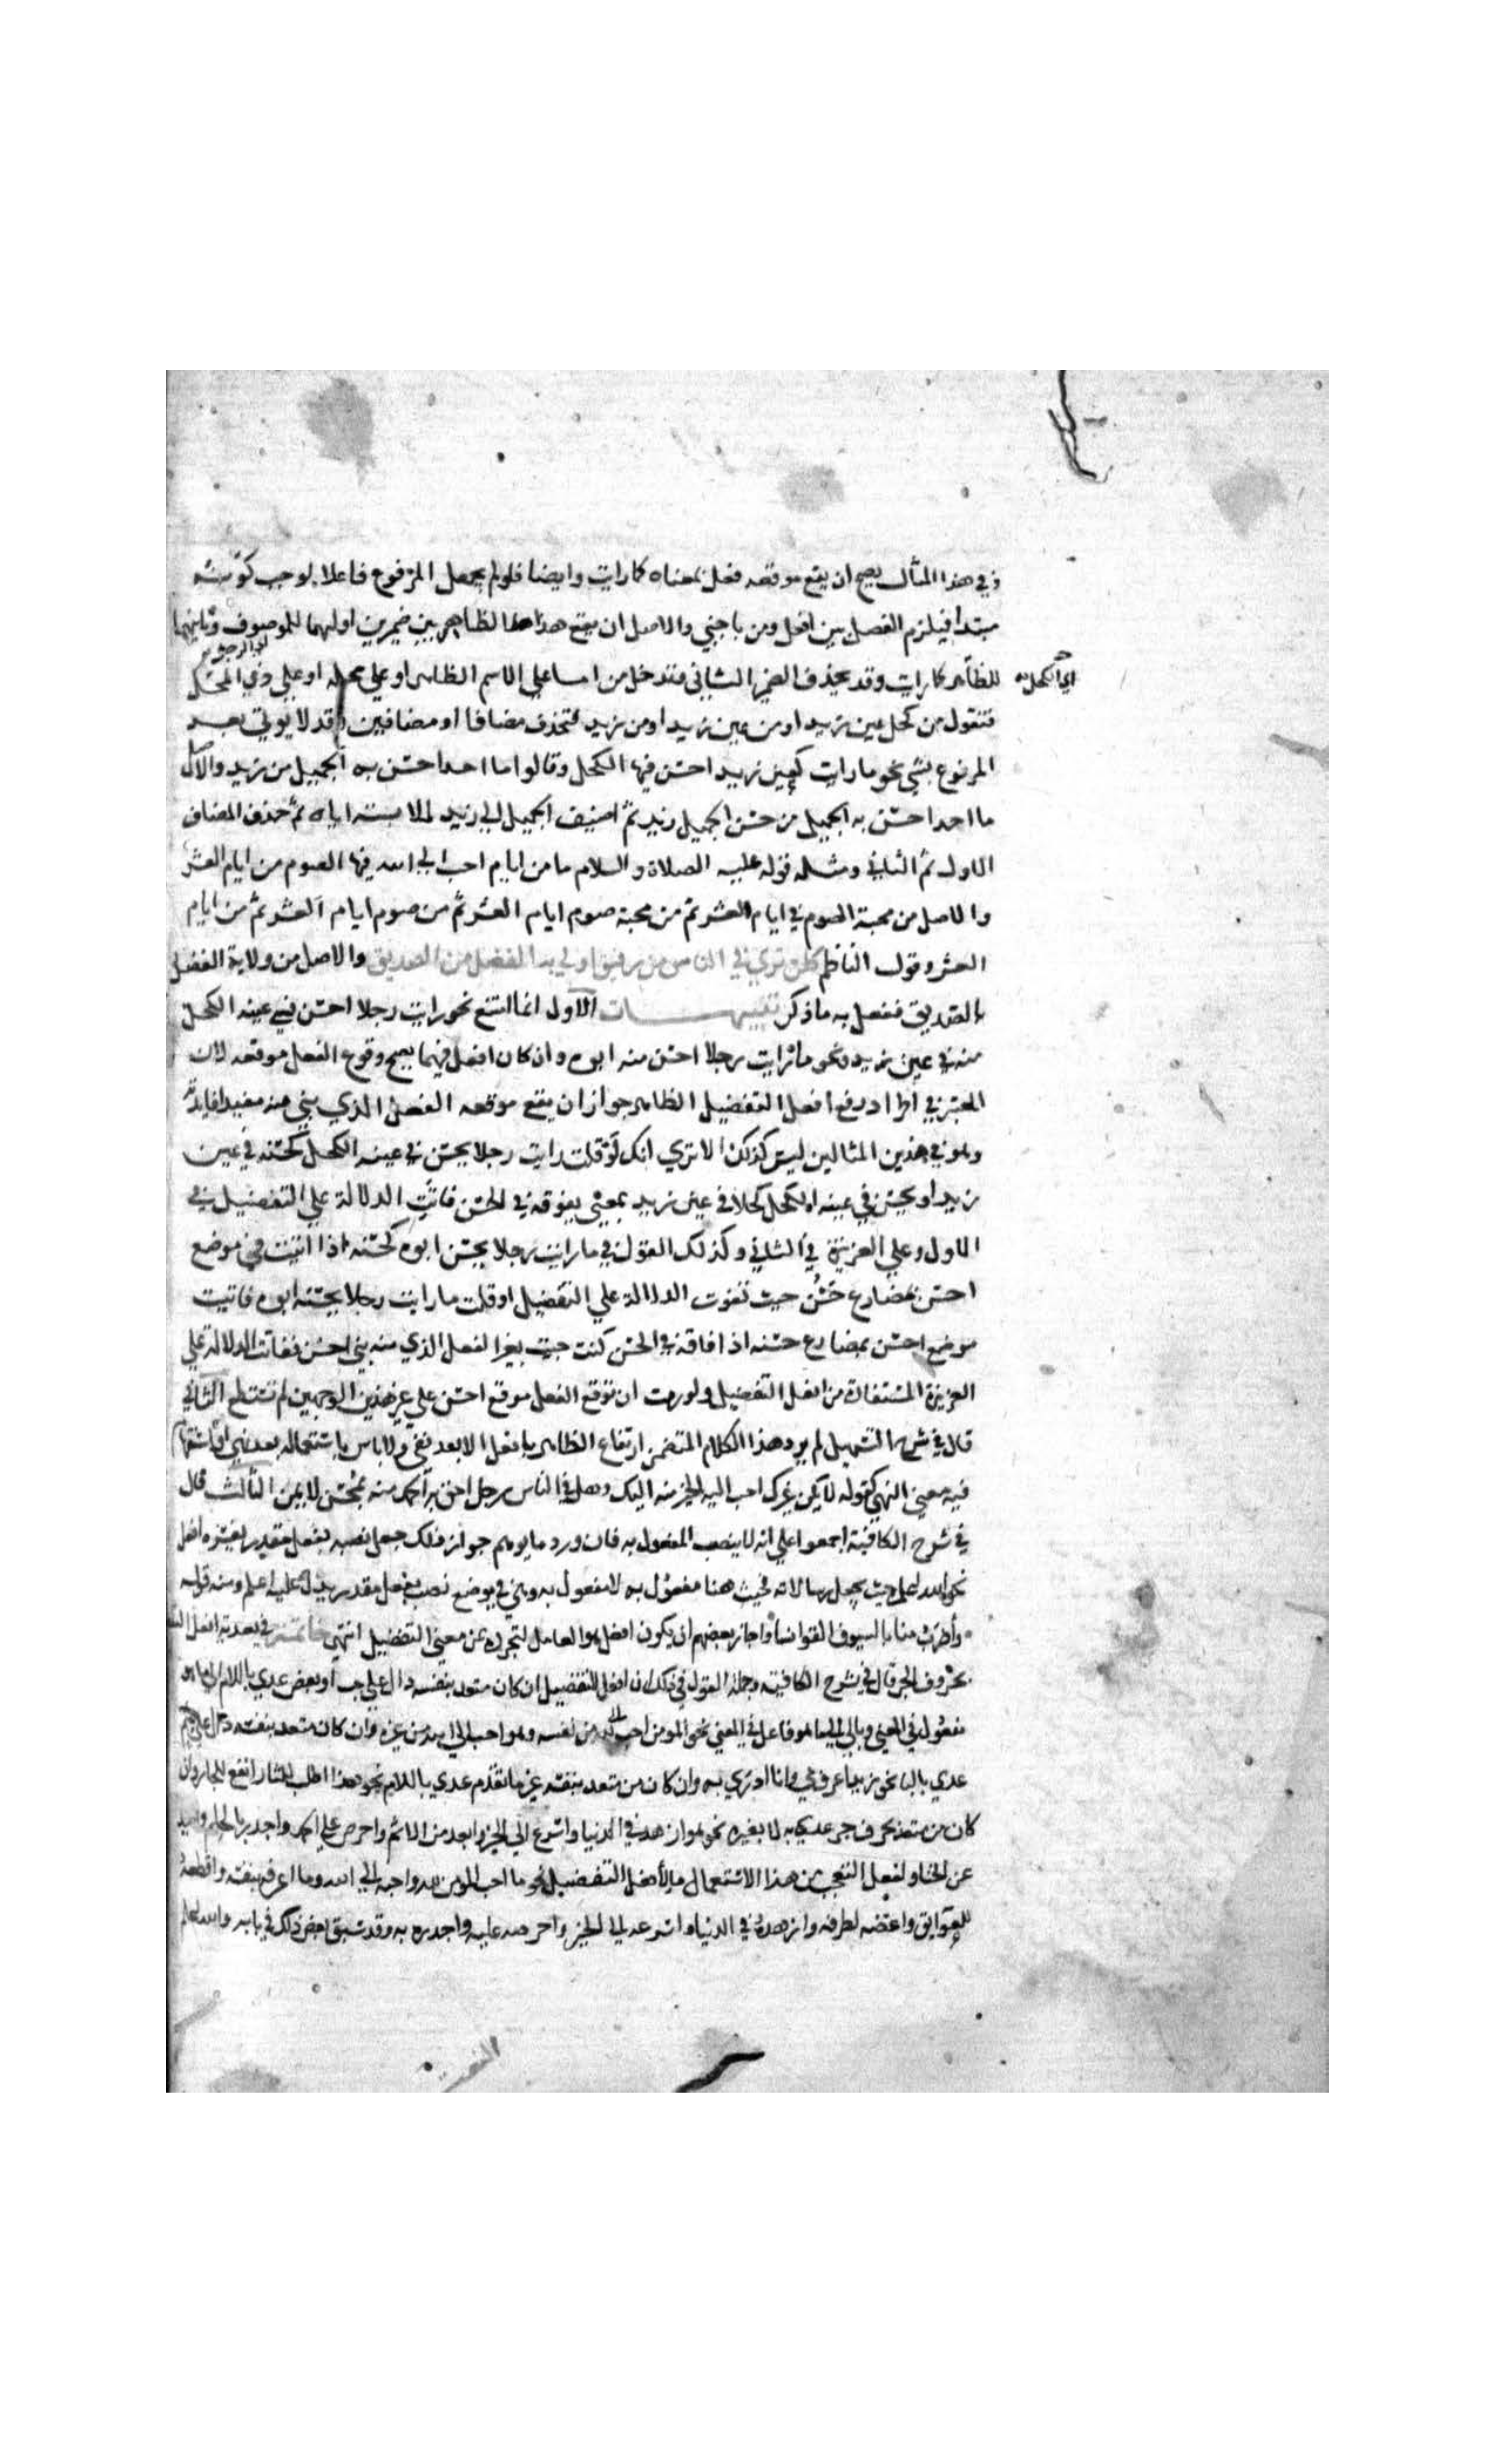 وفي هذا المثال يصح ان يقع موقعه فعل بمعناه كما رايت وايضا فلو لم يجعل المرفوع فاعلا لوجب كونه
مبتدا فيلزم الفصل بين افعل ومن باجنبي والاصل ان يقع هذا الظاهر بين ضميرين اولهما للموصوف وثانيهما
اي الكحل
للظاهر كما رايت وقد يحذف الضمير الثاني فتدخل من اما على الاسم الظاهر او على محله او على ذي المحل
فتقول من كحل عين زيد او من عين زيد او من زيد فتحذف مضافا او مضافين وقد لا يوتي بعد
المرفوع بشي نحو ما رايت كعين زيد احسن فيها الكحل وقالوا ما احد احسن به الجميل من زيد والاصل
ما احد احسن به الجميل من حسن الجميل بزيد ثم اضيف الجميل الي زيد لملابسته اياه ثم حذف المضاف
الاول ثم الثاني ومثله قوله عليه الصلاة والسلام ما من ايام احب الي الله فيها الصوم من ايام العشر
والاصل من محبة الصوم في ايام العشر ثم من محبة صوم ايام العشر ثم من صوم ايام العشر ثم من ايام
العشر وقول الناظم كلن تري في الناس من رفيق اولي به الفضل من الصديق والاصل من ولاية الفضل
بالصديق ففعل به ما ذكر تنبيهات الاول انما امتنع نحو رايت رجلا احسن في عينه الكحل
منه في عين زيد ونحو ما رايت رجلا احسن منه ابوه وان كان افعل فيهما يصح وقوع الفعل موقعه لان
المعتبر في اطراد رفع افعل التفضيل الظاهر جواز ان يقع موقعه الفعل الذي بني منه مفيدا فايدته
وهو في هذين المثالين ليس كذلك الا تري انك لو قلت رايت رجلا يحسن في عينه الكحل كحسنه في عين
زيد او يحسن في عينه الكحل كحلا في عين زيد بمعني يفوقه في الحسن فاتت الدلالة علي التفضيل في
الاول وعلي الغريزة في الثاني وكذلك القول في ما رايت رجلا يحسن ابوه كحسنه اذا اتيت في موضع
احسن بمضارع حسن حيث تفوت الدلالة علي التفضيل او قلت ما رايت رجلا يحسنه ابوه فاتيت
موضع احسن بمضارع حسنه اذا فاقه في الحسن كنت جيت بغير الفعل الذي منه بني احسن ففاتت الدلالة علي
الغريزة المستفادة من افعل التفضيل ولو رمت ان توقع الفعل موقع احسن علي غير هذين الوجهين لم تستطع الثاني
قال في شرح التسهيل لم يرد هذا الكلام المتضمن ارتفاع الظاهر بافعل الا بعد نفي ولا باس باستعماله بعد نهي او استفهام
فيه معني النهي كقوله لا يكن غيرك احب اليه الخير منه اليك وهل في الناس رجل احق به الحمد منه بمحسن لا يمن الثالث قال
في شرح الكافية اجمعوا علي انه لا ينصب المفعول به فان ورد ما يوهم جواز ذلك جعل نصبه بفعل مقدر يفسره افعل
نحو الله اعلم حيث يجعل رسالاته فحيث هنا مفعول به لا مفعول فيه وهي في موضع نصب بفعل مقدر يدل عليه اعلم ومنه قوله
واضرب منا بالسيوف القوانسا واجاز بعضهم ان يكون افعل هو العامل لتجرده عن معني التفضيل انتهي خاتمة في تعدية افعل التفضيل
بحروف الجر قال في شرح الكافية وجملة القول في ذلك ان افعل التفضيل ان كان متعد بنفسه دال علي حب او بغض عدي باللام الي ما هو
مفعول في المعني وبالي الي ما هو فاعل في المعني نحو المومن احب لله من نفسه وهو احب الي الله من غيره وان كان متعد بنفسه دال علي علم
عدي بالبا نحو زيد اعرف بي وانا ادري به وان كان من متعد بنفسه غير ما تقدم عدي باللام نحو هو اطلب للثار انفع للجار وان
كان من متعد بحرف جر عدي به لا بغيره نحو هو ازهد في الدنيا واسرع الي الخير وابعد من الاثم واحرص علي الحمد واجدر بالحلم واحيد
عن الخنا ولفعل التعجب من هذا الاستعمال ما لافعل التفضيل نحو ما احب المومن لله واحبه الي الله وما اعرفه بنفسه واقطعه
للعوايق واغضه لطرفه وازهده في الدنيا واسرعه الي الخير واحرصه عليه واجدره به وقد سبق بعض ذلك في بابه والله اعلم
النعت